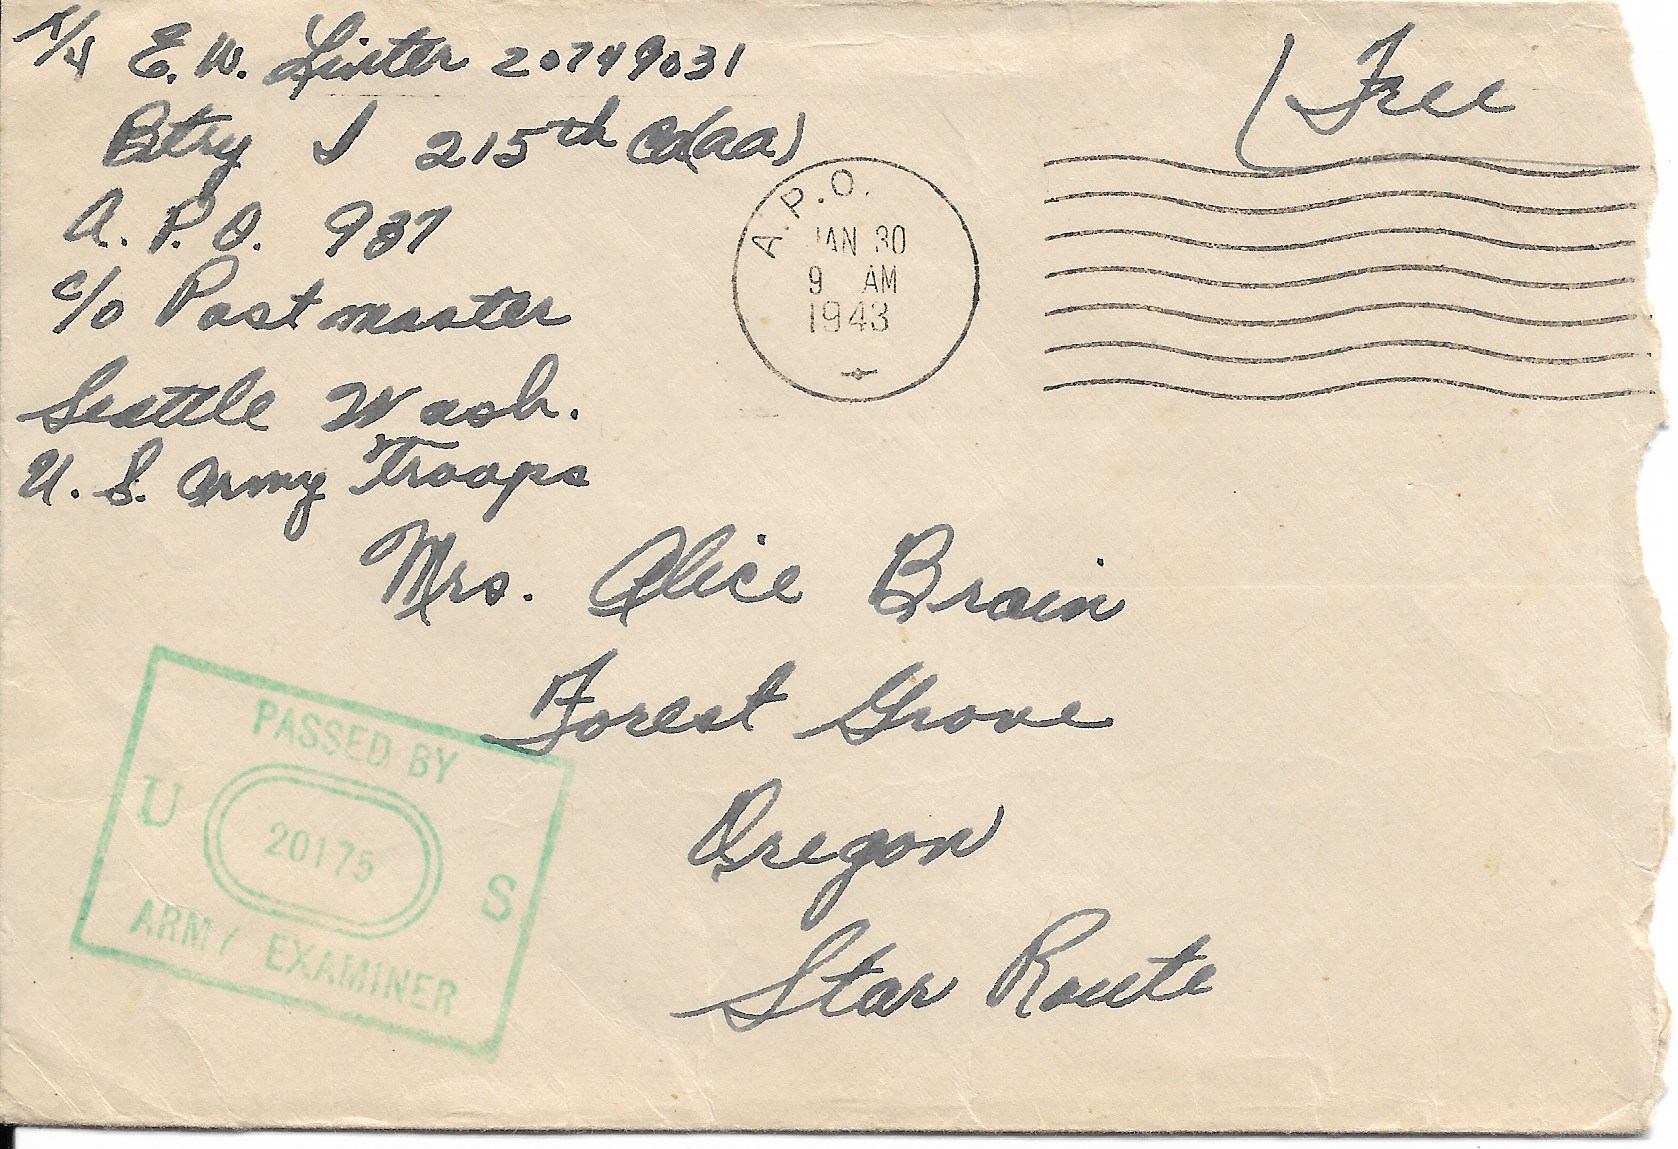 T/4 E. W. Linter 20749031
Btry I 215th Ca(aa)
A. P. O. 937
c/o Postmaster
Seattle Wash.
U. S. Army Troops
Free
A.P.O.
JAN 30
9 AM
1943
Mrs. Alice Brain
Forest Grove
Oregon
Star Route
PASSED BY
U S
20175
ARMY EXAMINER